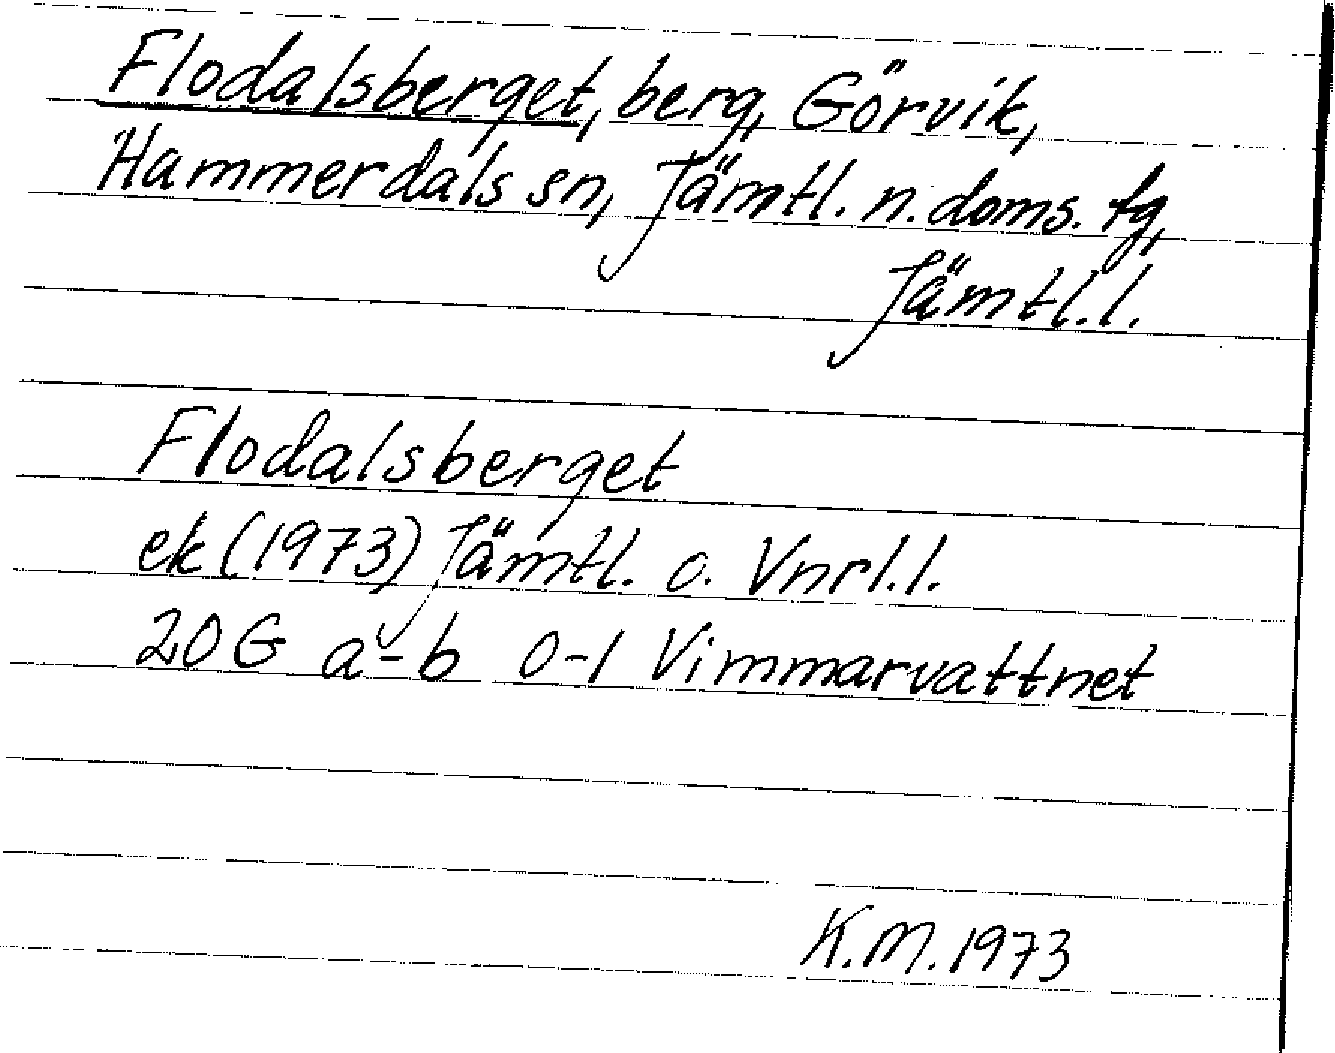 Flodalsberget, berg, Görvik,
Hammerdals sn, Jämtl. n. doms. tg,
Jämtl.l.
Flodalsberget
ek (1973) Jämtl. o. Vnrl.l.
20G a-b 0-1 Vimmarvattnet
K.M. 1973